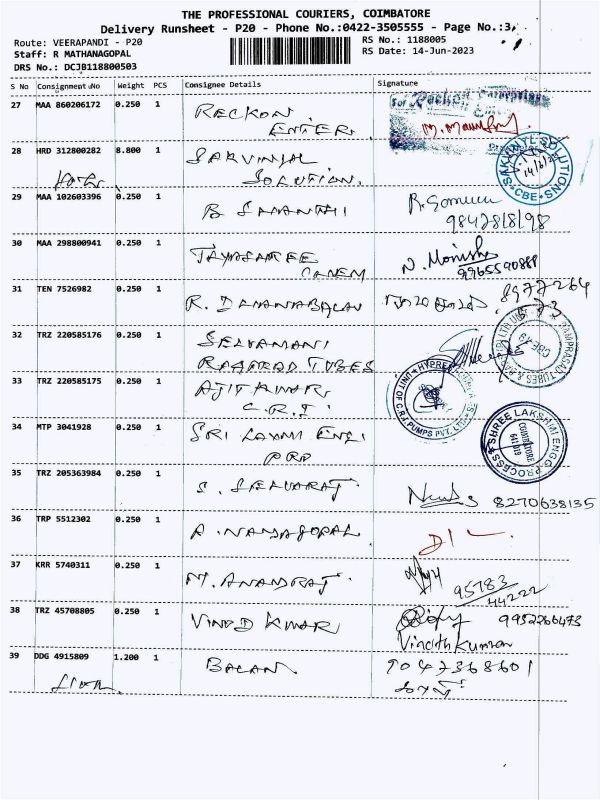 THE PROFESSIONAL COURIERS, COIMBATORE
Delivery Runsheet - P20 - Phone No.:0422-3505555 - Page No.:3
Route: VEERAPANDI - P20
RS No.: 1188005
Staff: R MATHANAGOPAL
RS Date: 14-Jun-2023
DRS No.: DCJB118800503
S No Consignment No Weight PCS Consignee Details Signature
27 MAA 860206172 0.250 1 RECKON
ENTER
For Reckon Enterprises
28 HRD 312800282 8.800 1 SARVINJAL
SOLUTION.
14/6/23
SOLUTIONS
* CBE *
29 MAA 102603396 0.250 1 B SHANTHI
30 MAA 298800941 0.250 1 JAYASREE
CHEM
N. Monisha
9965590888
31 TEN 7526982 0.250 1 R. DHANABALAN
8977264
573
32 TRZ 220585176 0.250 1 SELVAMANI
RAMPRAD TUBES
RAMPRASAD TUBES &
CBE-19
33 TRZ 220585175 0.250 1 AJITKUMAR
C.R.I.
UNIT OF C.R.I. PUMPS PVT. LTD.
34 MTP 3041928 0.250 1 SRI LAXMI ENGI
PRO
SHREE LAKSHMI ENGG PROCESS
COIMBATORE
641 019
35 TRZ 205363984 0.250 1 S. SELVARAJ
8270638135
36 TRP 5512302 0.250 1 A. NANJAGOPAL
37 KRR 5740311 0.250 1 M. ANANDRAJ
95783
44222
38 TRZ 45708805 0.250 1 VINOD KUMAR
9952266473
Vinoth Kumar
39 DDG 4915809 1.200 1 BALAN
9047368601